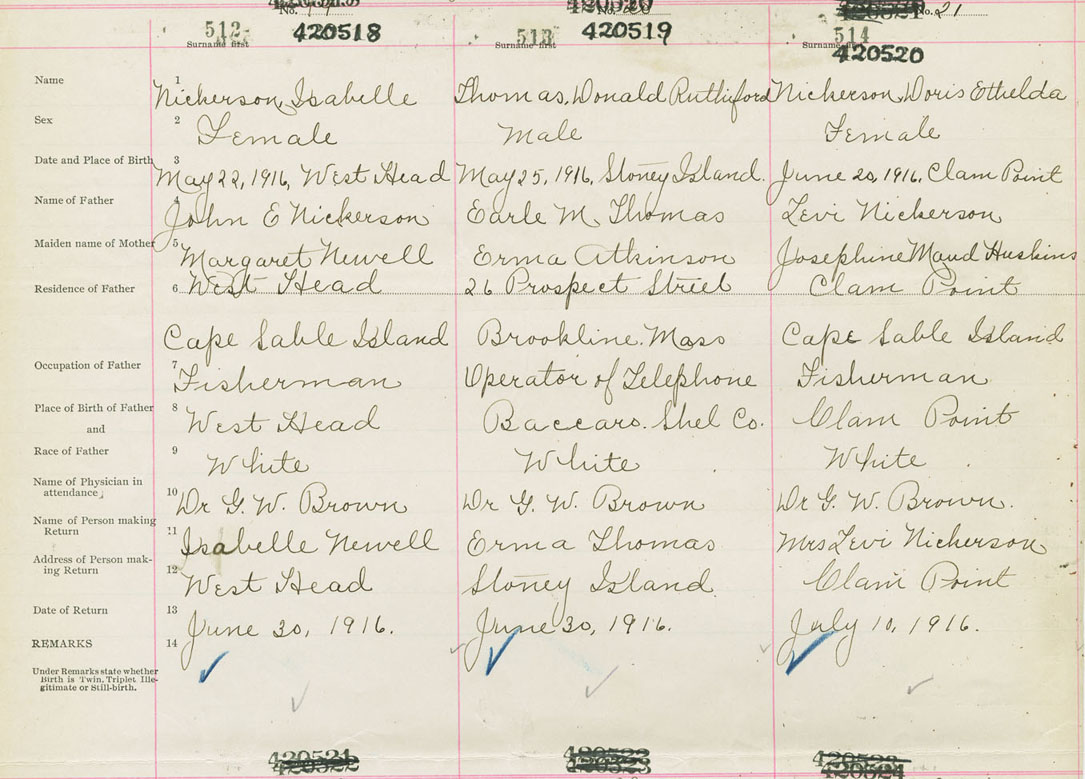 No. No. 21
512 420518 513 420519 514 420520
Surname first Surname first Surname first
Name 1 Nickerson, Isabelle Thomas, Donald Rutherford Nickerson, Doris Ethelda
Sex 2 Female Male Female
Date and Place of Birth 3 May 22, 1916, West Head May 25, 1916, Stoney Island. June 20, 1916, Clam Point
Name of Father 4 John E Nickerson Earle M. Thomas Levi Nickerson
Maiden name of Mother 5 Margaret Newell Erma Atkinson Josephine Maud Huskins
Residence of Father 6 West Head 26 Prospect Street Clam Point
Cape Sable Island Brookline. Mass Cape Sable Island
Occupation of Father 7 Fisherman Operator of Telephone Fisherman
Place of Birth of Father 8 West Head Baccaro. Shel Co. Clam Point
and
Race of Father 9 White White White
Name of Physician in
attendance 10 Dr G. W. Brown Dr G. W. Brown Dr G. W. Brown.
Name of Person making
Return 11 Isabelle Newell Erma Thomas Mrs Levi Nickerson
Address of Person mak-
ing Return 12 West Head Stoney Island Clam Point
Date of Return 13 June 30, 1916. June 30, 1916. July 10, 1916.
REMARKS 14
Under Remarks state whether
Birth is Twin, Triplet Ille-
gitimate or Still-birth.